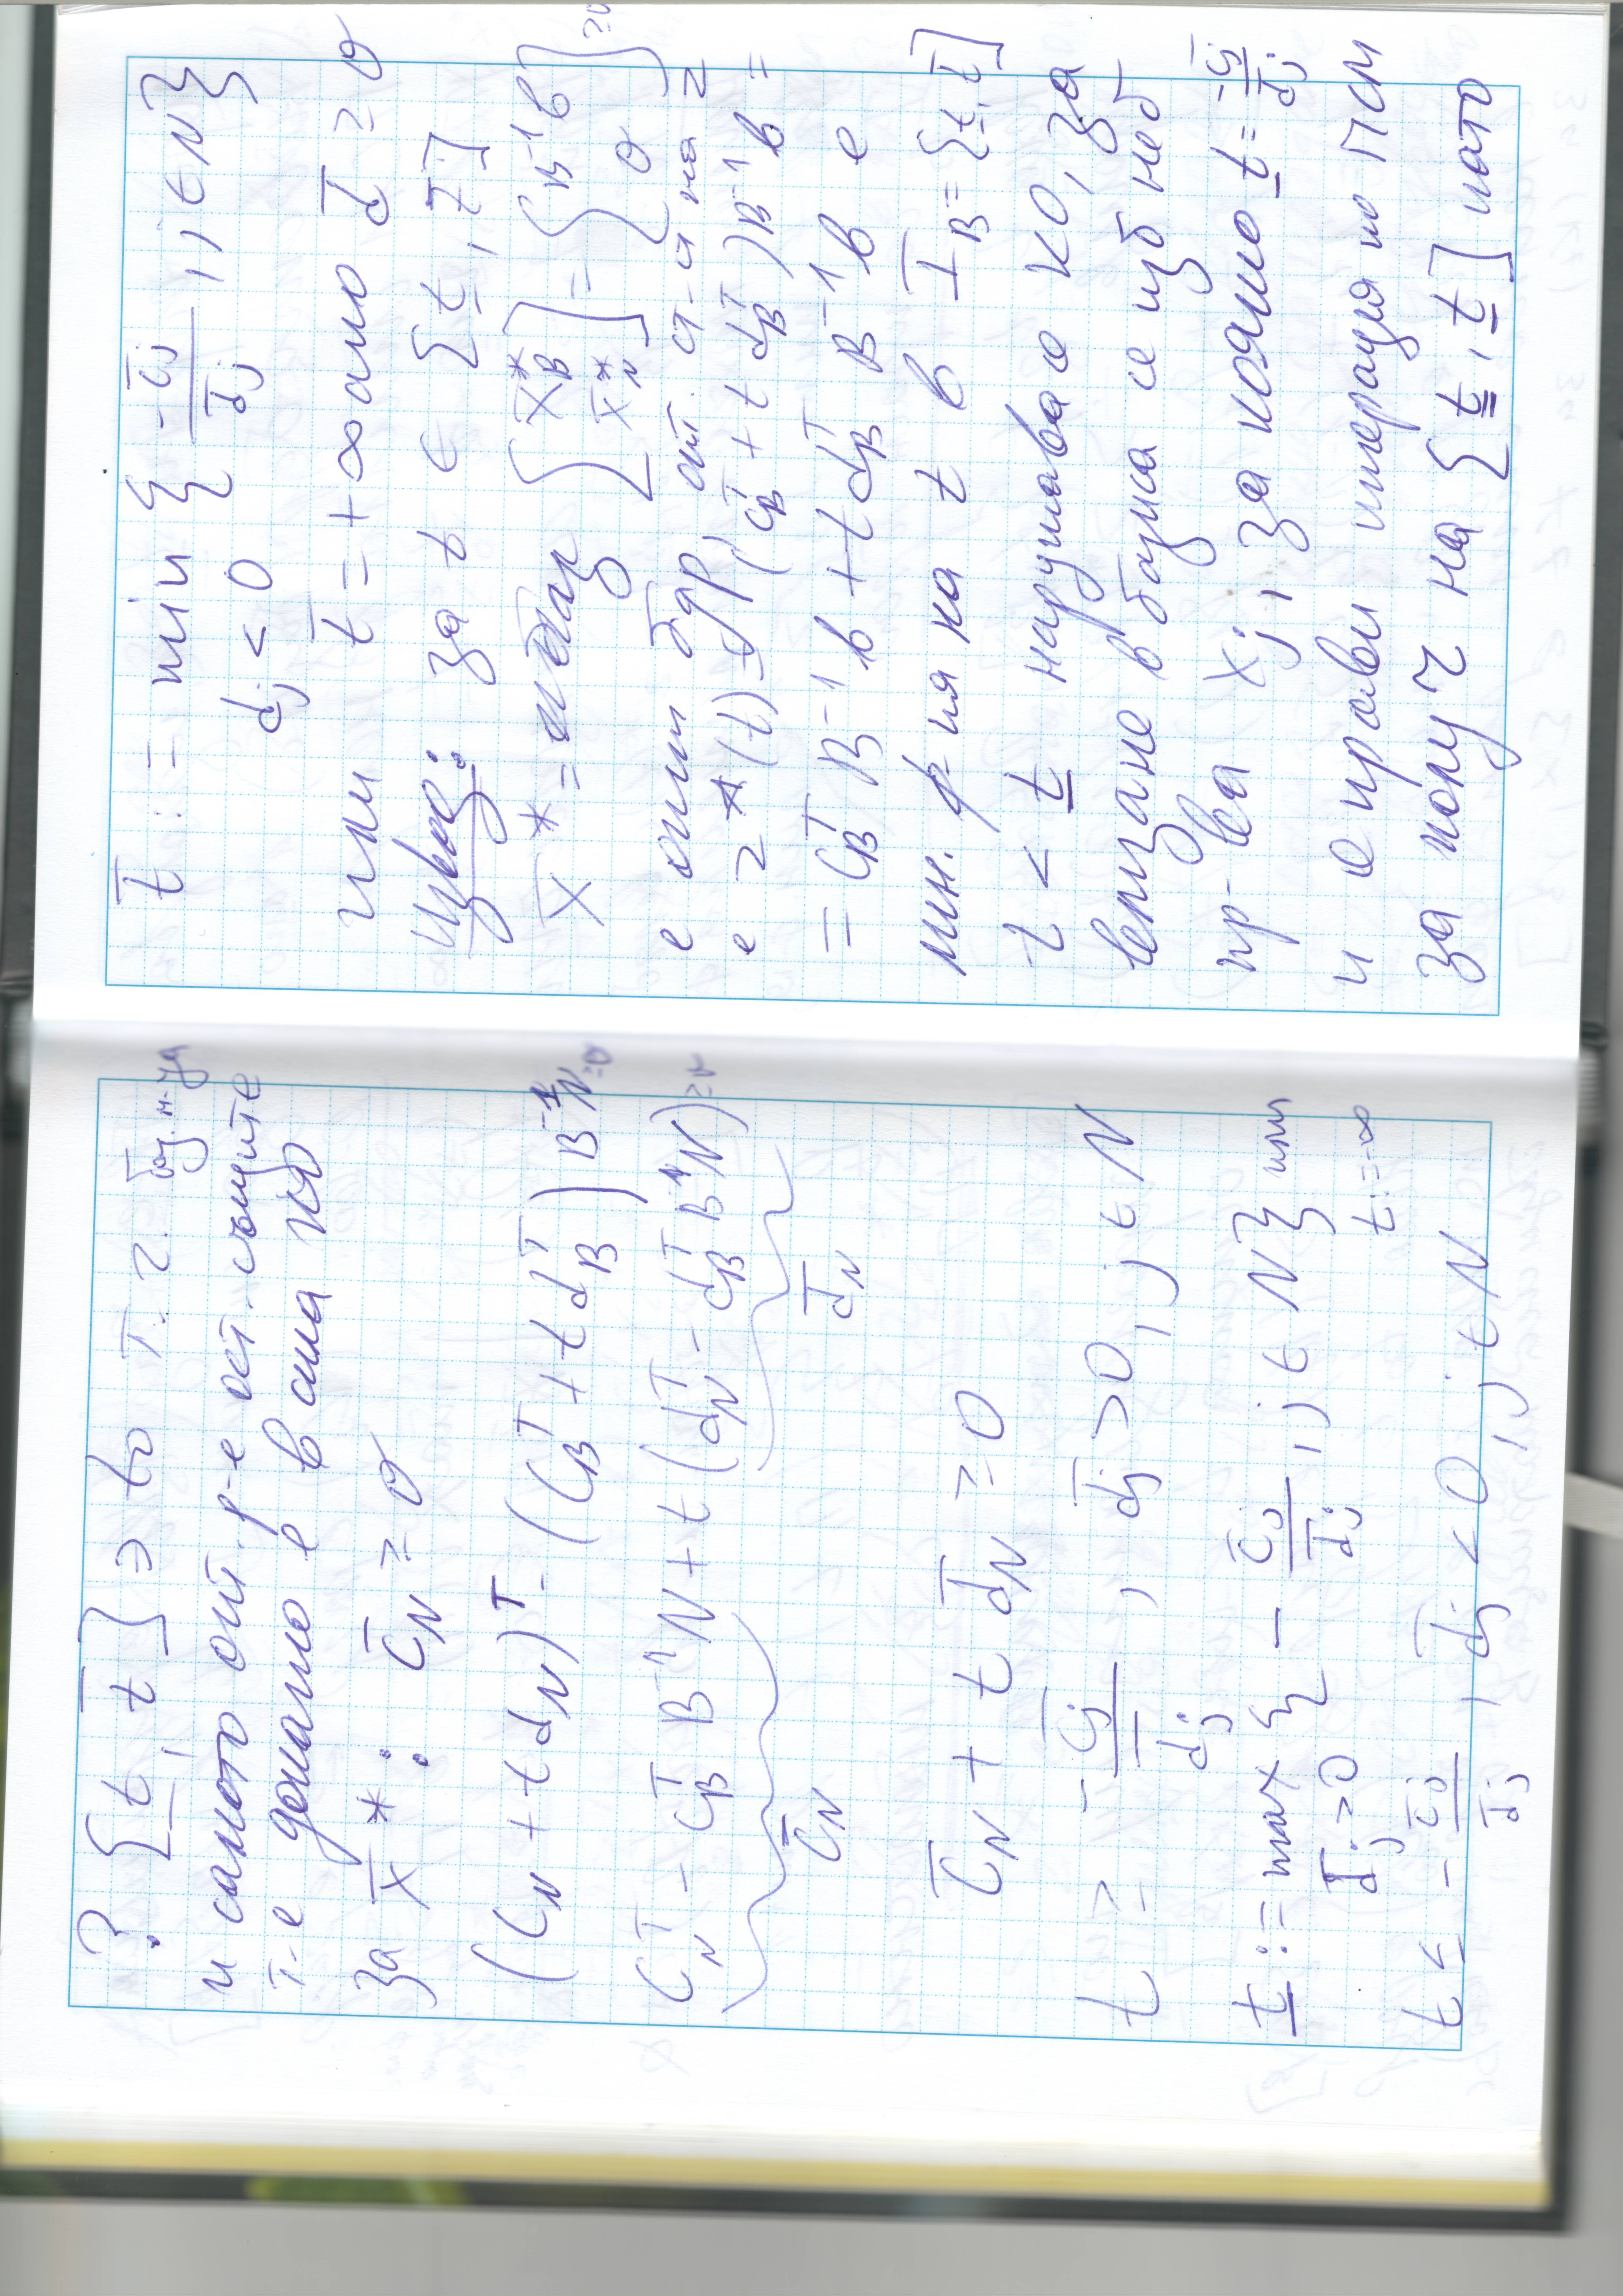 ? [t̲, t̄] ∋ t₀ т. ч. баз. н-за
и самото опт. р-е ост. същите
т. е докато е в сила КО
за x̄* : c̄_N ≥ 0
(c_N + t d_N)^T - (c_B^T + t d_B^T) B⁻¹N ≥ 0
c_N^T - c_B^T B⁻¹N + t (d_N^T - d_B^T B⁻¹N) ≥ 0
c̄_N d̄_N
c̄_N + t d̄_N ≥ 0
t ≥ - c̄_j / d̄_j , d̄_j > 0, j ∈ N
t̲ := max { - c̄_j / d̄_j , j ∈ N } или
d̄_j > 0 t := -∞
t ≤ - c̄_j / d̄_j , d̄_j < 0, j ∈ N
t̄ := min { - c̄_j / d̄_j , j ∈ N }
d̄_j < 0
или t̄ = +∞ ако d̄ ≥ 0
Извод: за t ∈ [t̲, t̄]
x̄* = [x̄*_B x̄*_N] = [B⁻¹b 0] ≥ 0
е опт бдр, опт. ст-ст на z
е z*(t) = (c_B^T + t d_B^T) B⁻¹ b =
= c_B^T B⁻¹ b + t d_B^T B⁻¹ b е
лин. ф-ия на t в I_B = [t̲, t̄]
t < t̲ нарушава се КО, за
влизане в базиса се изб неб
пр-ва x_j, за която t̲ = - c̄_j / d̄_j
и е прави итерация по ПСМ
за получ на [t̳, t̲] като